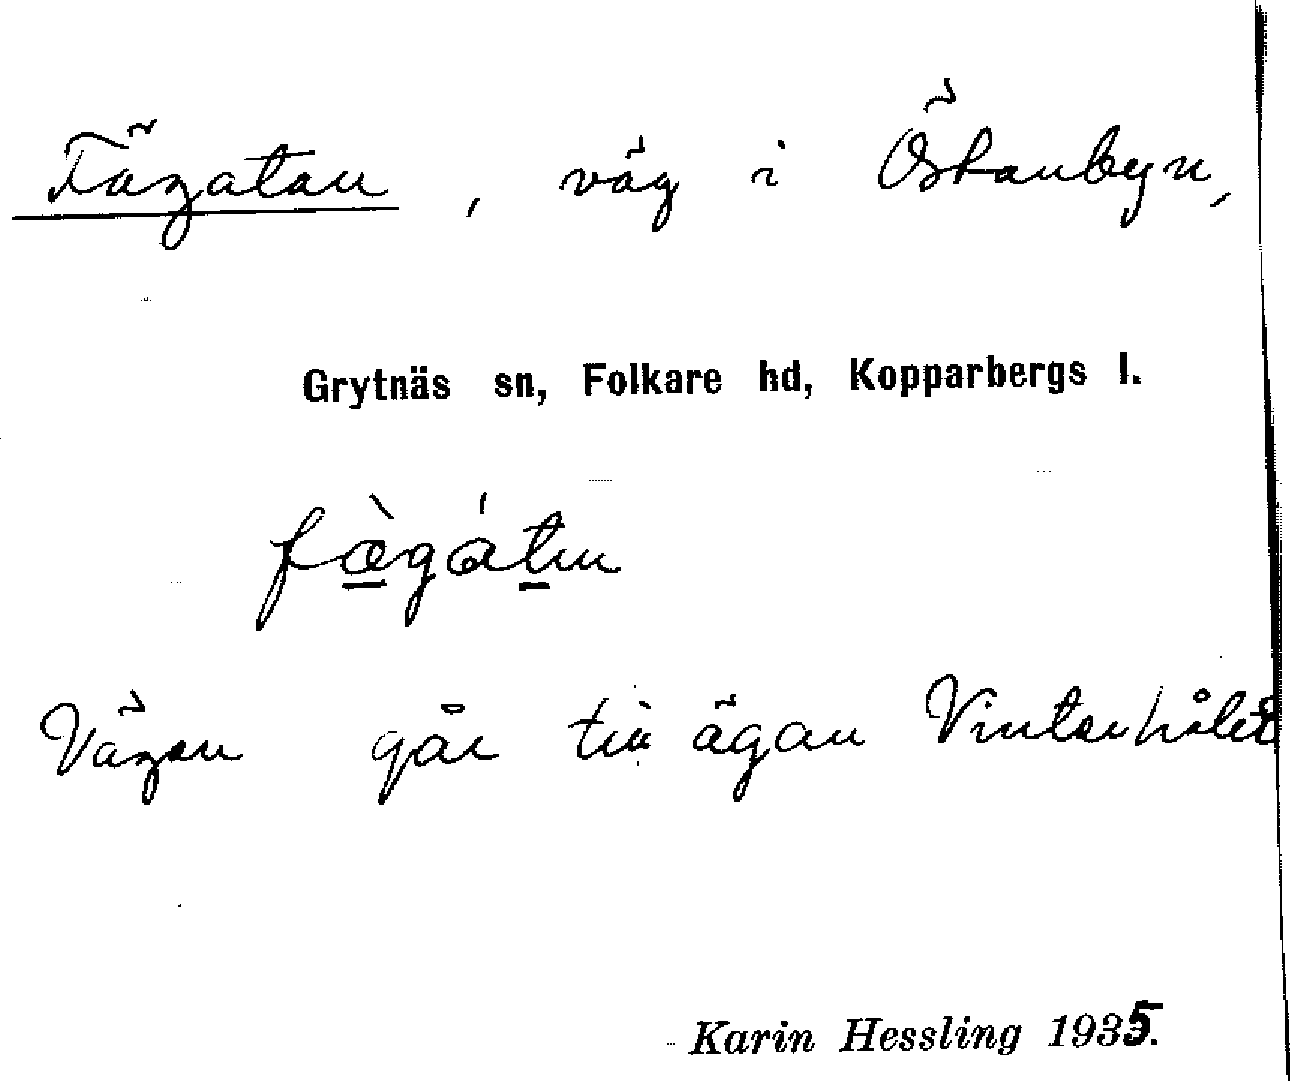 Fägatan, väg i Östanbyn,
Grytnäs sn, Folkare hd, Kopparbergs l.
fæ̀gátn
Vägen går till ägan Vinterhålet
Karin Hessling 1935.